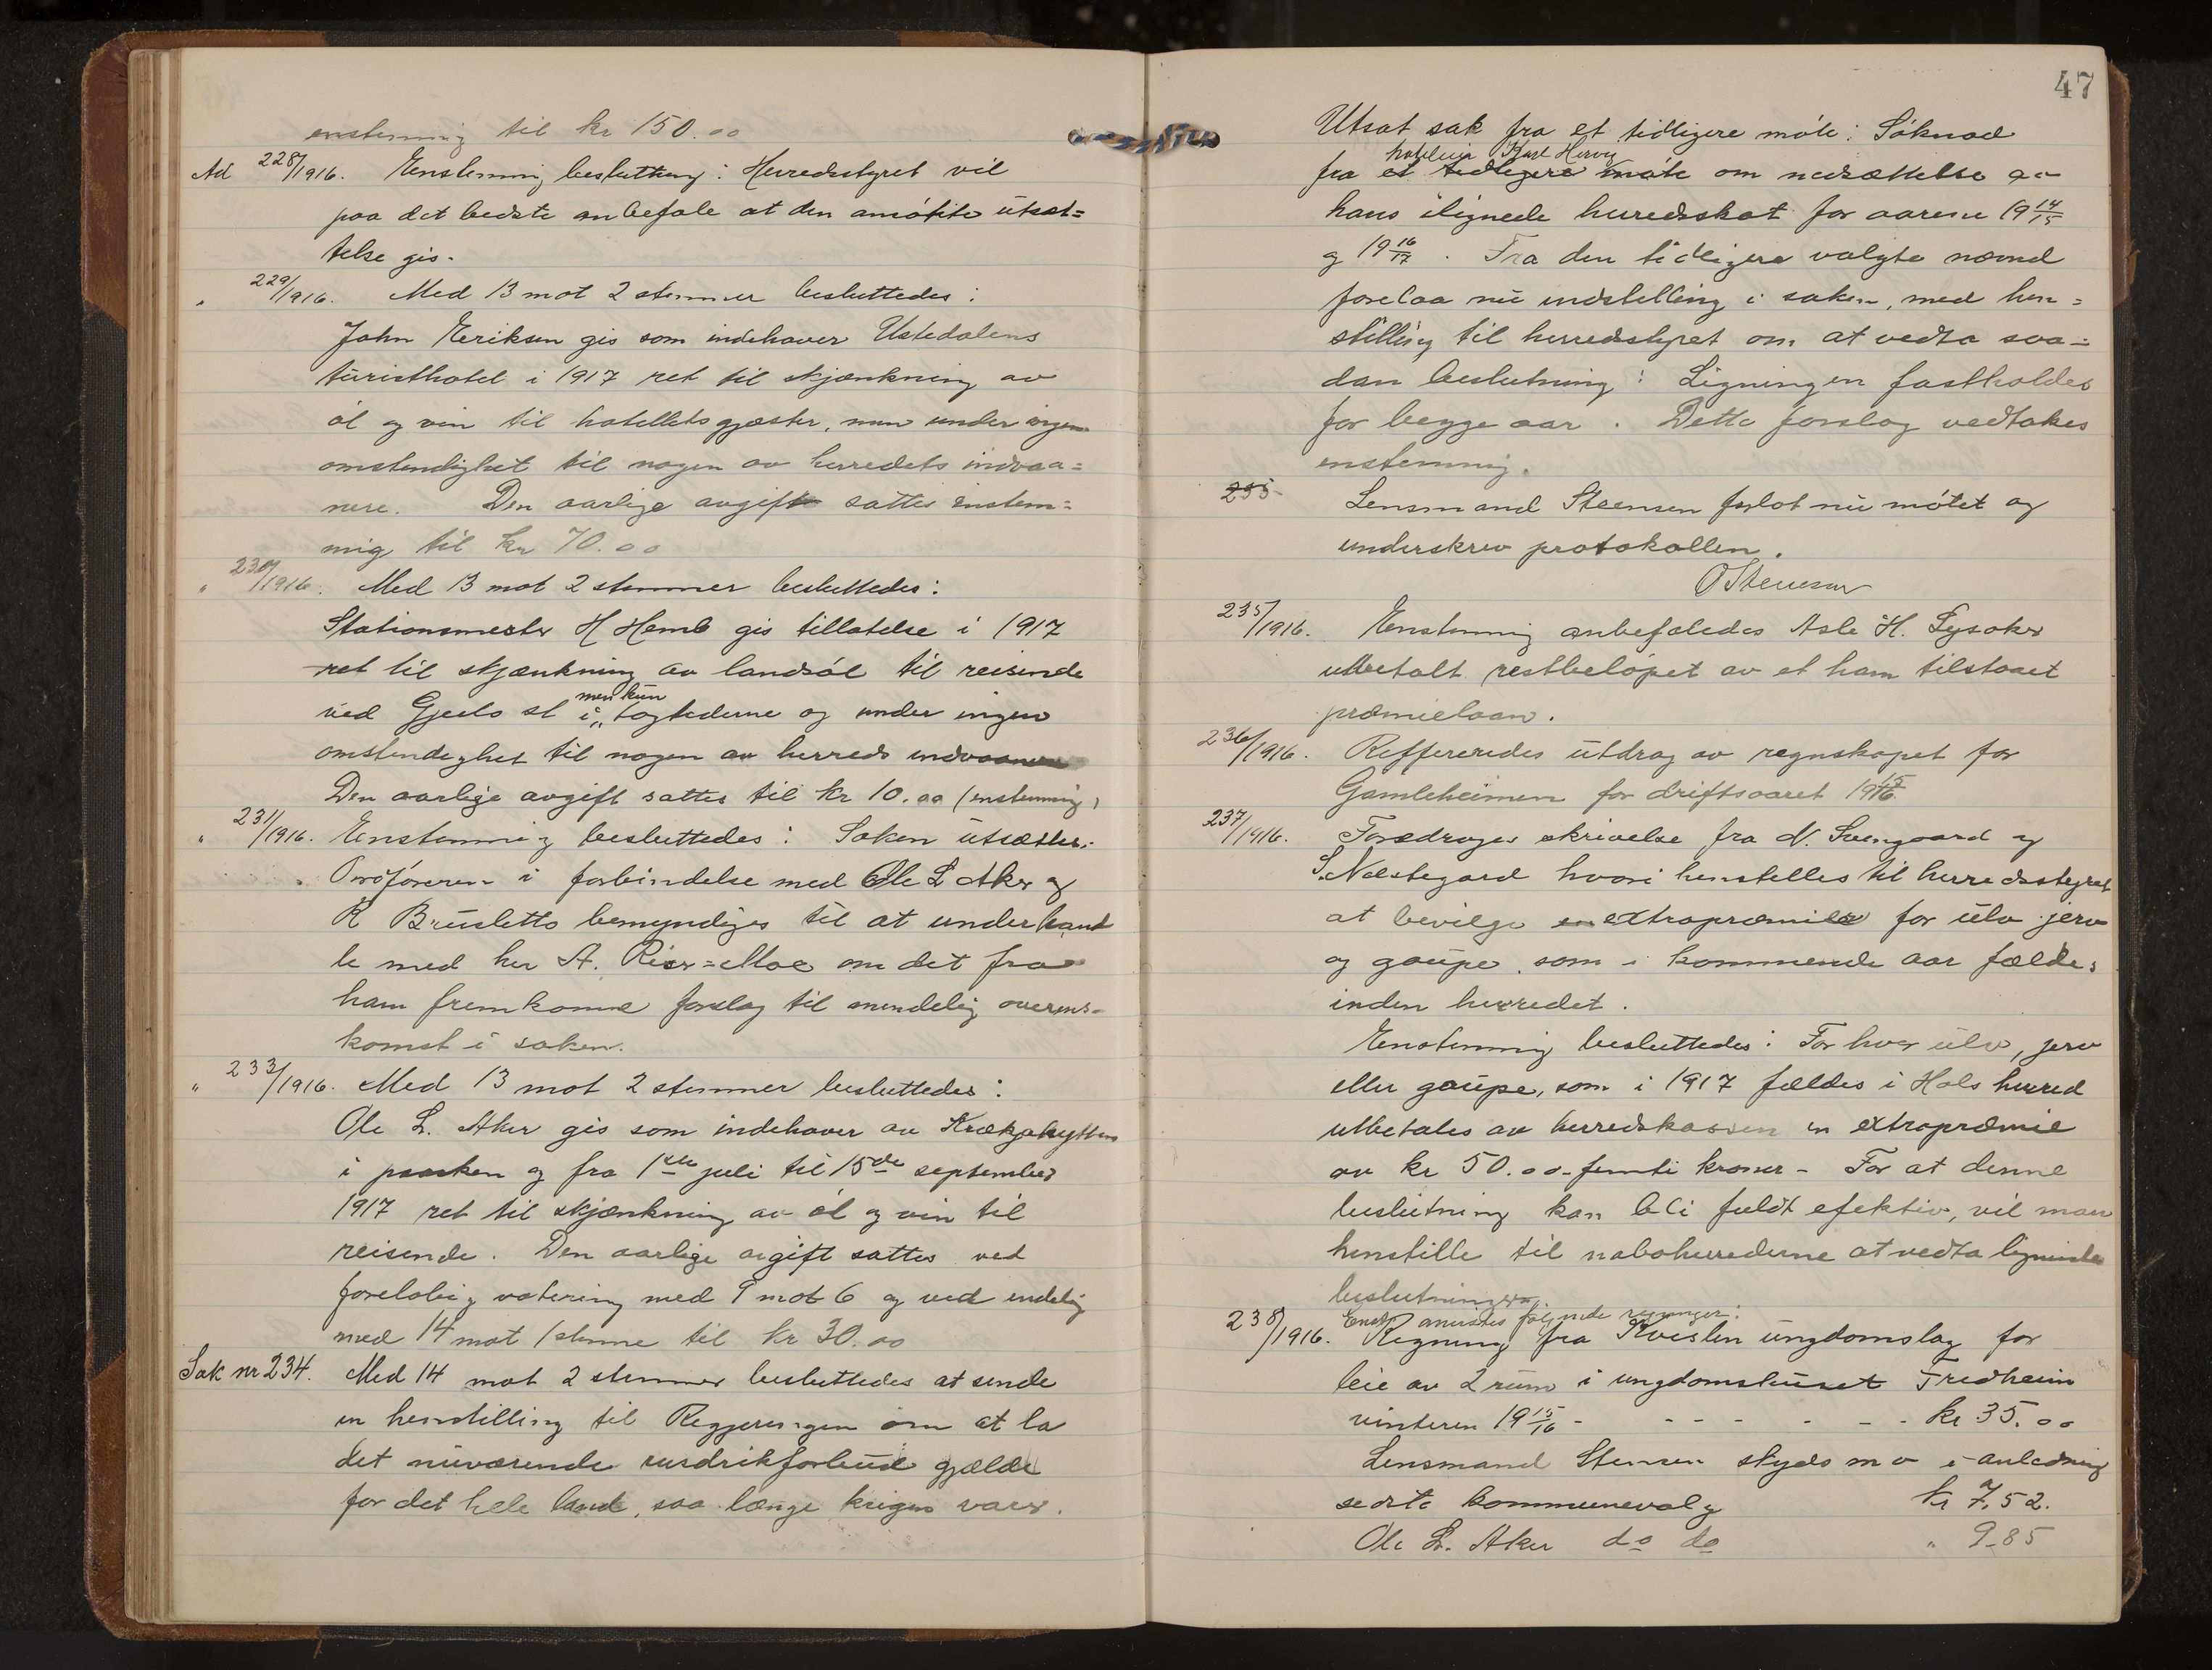 enstemmig til kr 150.00
Ad 228/1916. Enstemmig beslutning: Herredsstyret vil
paa det bedste anbefale at den ansökte utsæt=
telse gis.
" 229/1916. Med 13 mot 2 stemmer besluttedes:
John Eriksen gis som indehaver Ustedalens
turisthotel i 1917 ret til skjænkning av
öl og vin til hotellets gjæster, men under ingen
omstendighet til nogen av herredets indvaa=
nere. Den aarlige avgift sattes enstem=
mig til kr 70.00
" 230/1916. Med 13 mot 2 stemmer besluttedes:
Stationsmester H Hemb gis tillatelse i 1917
ret til skjænkning av landsöl til reisende
men kun
ved Gjeilo st i togtederne og under ingen
omstendighet til nogen av herreds indvaanere
Den aarlige avgift sattes til kr 10.00 (enstemmig)
" 231/1916. Enstemmig besluttedes: Saken utsættes.
Ordföreren i forbindelse med Ole L Aker og
K Brusletto bemyndiges til at underhand
le med her A. Rieer=Moe om det fra
ham fremkomne forslag til mindelig overens-
komst i saken.
" 233/1916. Med 13 mot 2 stemmer besluttedes:
Ole L. Aker gis som indehaver av Krækjahytten
i paasken og fra 1ste juli til 15de september
1917 ret til skjænkning av öl og vin til
reisende. Den aarlige avgift sattes ved
forelöbig votering med 9 mot 6 og ved endelig
med 14 mot 1 stemme til kr 30.00
Sak nr 234. Med 14 mot 2 stemmer besluttedes at sende
en henstilling til Regjeringen om at la
det nuværende rusdrikforbud gjælde
for det hele land, saa længe krigen varer.
47
Utsat sak fra et tidligere möte: Söknad
hoteleier Karl Hervig
fra et tidligere möte om nedsættelse av
hans ilignede herredsskat for aarene 19 14/15
og 19 16/17. Fra den tidligere valgte nævnd
forelaa nu indstilling i saken, med hen=
stilling til herredsstyret om at vedta saa=
dan beslutning: Ligningen fastholdes
for begge aar. Dette forslag vedtakes
enstemmig.
235 Lensmand Steensen forlot nu mötet og
underskrev protokollen.
O Steensen
235/1916. Enstemmig anbefaledes Asle H. Lysaker
utbetalt restbelöpet av et ham tilstaaet
præmielaan.
236/1916. Reffereredes utdrag av regnskapet for
Gamleheimen for driftsaaret 19 15/16.
237/1916. Foredroges skrivelse fra N. Svengaard og
S. Næstegard hvori henstilles til herredsstyret
at bevilge en extrapræmie for ulv jerv
og gaupe, som i kommende aar fældes
inden herredet.
Enstemmig besluttedes: For hver ulv, jerv
eller gaupe, som i 1917 fældes i Hols herred
utbetales av herredskassen en extrapræmie
av kr 50.00 - femti kroner - For at denne
beslutning kan bli fuldt efektiv, vil man
henstille til naboherrederne at vedta lignende
beslutninger.
Enst. anvistes fölgende regninger:
238/1916. Regning fra Kvislen ungdomslag for
leie av 2 rum i ungdomshuset Fredheim
vinteren 19 15/16 - - - - - - - kr 35.00
Lensmand Stensen skyds m v i anledning
sedste kommunevalg kr 7.52.
Ole L. Aker do do " 9.85